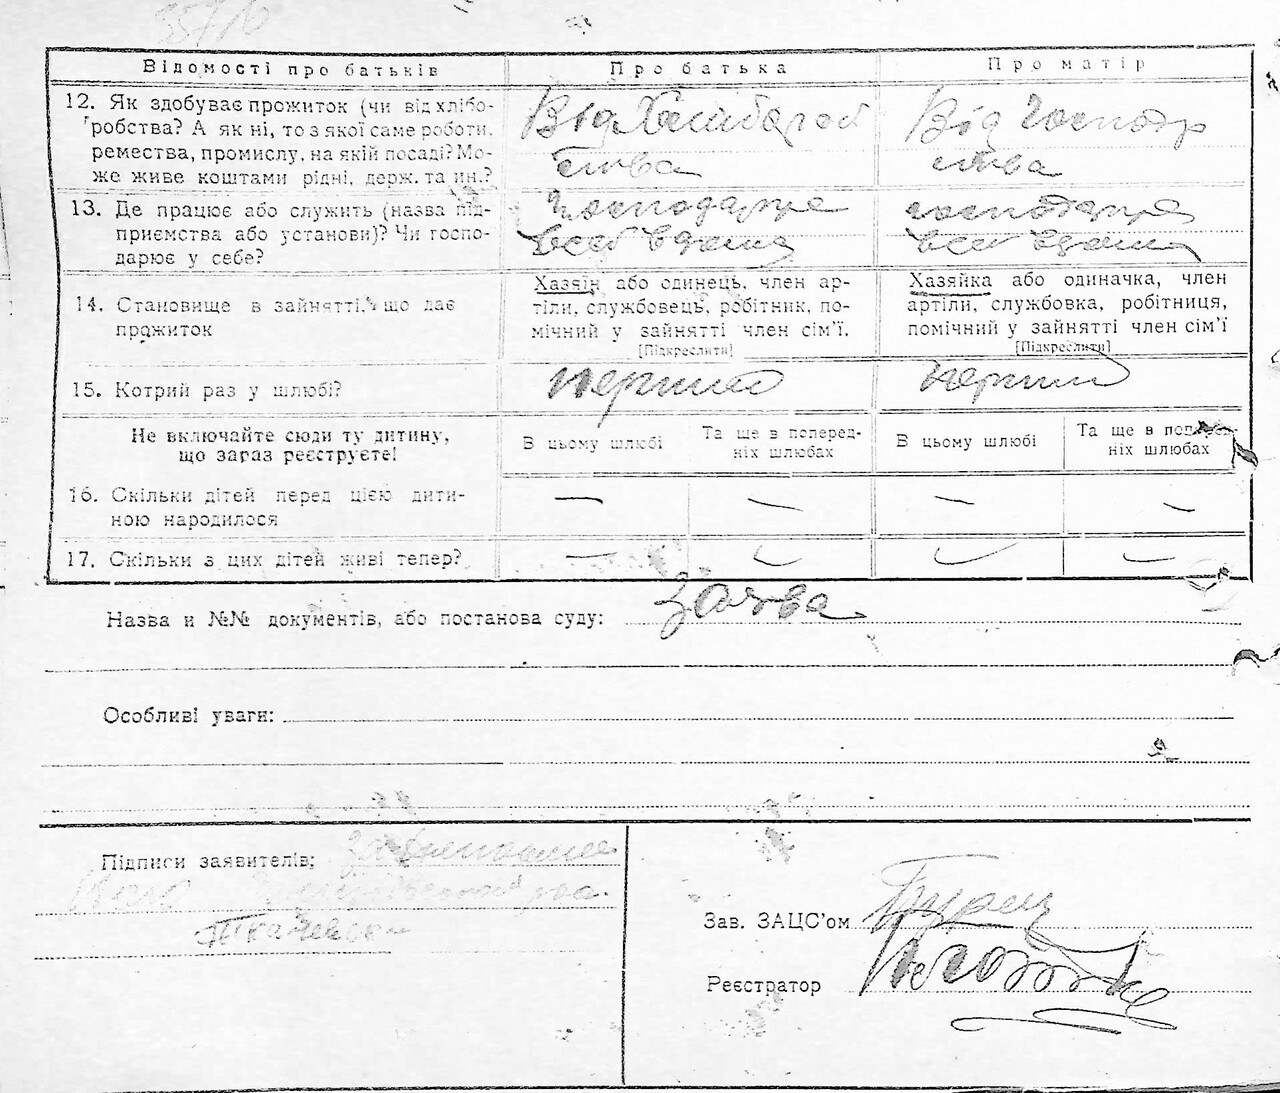 Відомості про батьків
Про батька
Про матір
12. Як здобуває прожиток (чи від хлібо-
робства? А як ні, то з якої саме роботи,
ремества, промислу, на якій посаді? Мо-
же живе коштами рідні, держ. та ин.?
Від
ства
Від господр
ства
13. Де працює або служить (назва під-
приємства або установи)? Чи госпо-
дарює у себе?
господарре
господарре
14. Становище в зайнятті, що дає
прожиток
Хазяїн або одинець, член ар-
тіли, службовець, робітник, по-
мічний у зайнятті член сім'ї.
[Підкреслити]
Хазяйка або одиначка, член
артіли, службовка, робітниця,
помічний у зайнятті член сім'ї
[Підкреслити]
15. Котрий раз у шлюбі?
перший
перший
Не включайте сюди ту дитину,
що зараз реєструєте!
В цьому шлюбі
Та ще в поперед-
ніх шлюбах
В цьому шлюбі
Та ще в поперед-
ніх шлюбах
16. Скільки дітей перед цією дити-
ною народилося
— — — —
17. Скільки з цих дітей живі тепер?
— — — —
Назва и №№ документів, або постанова суду: заява
Особливі уваги:
Підписи заявителів:
Зав. ЗАЦС'ом
Реєстратор